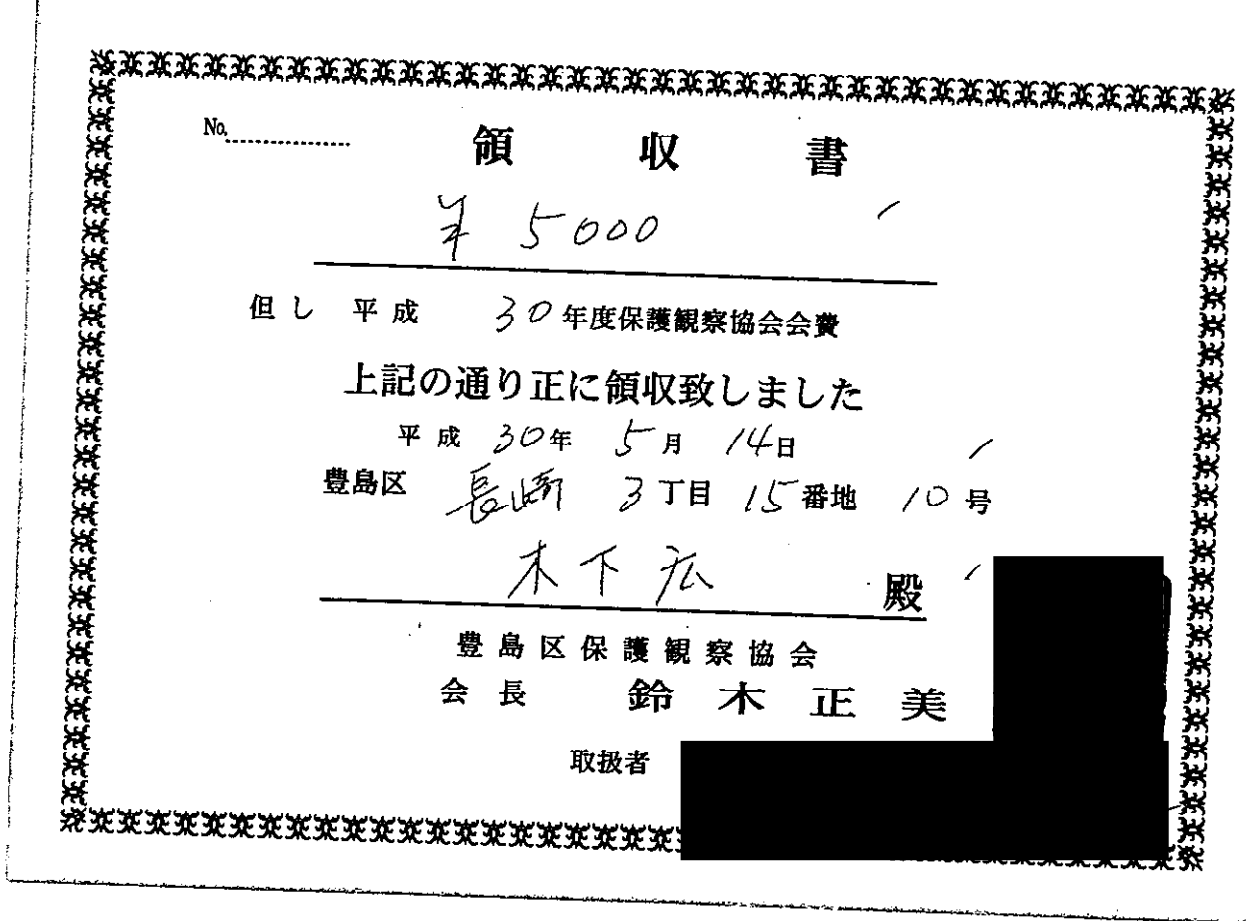 No.
領収書
¥5000
但し 平成 30年度保護観察協会会費
上記の通り正に領収致しました
平成 30年 5月 14日
豊島区 長崎 3丁目 15番地 10号
木下広 殿
豊島区保護観察協会
会長 鈴木正美
取扱者